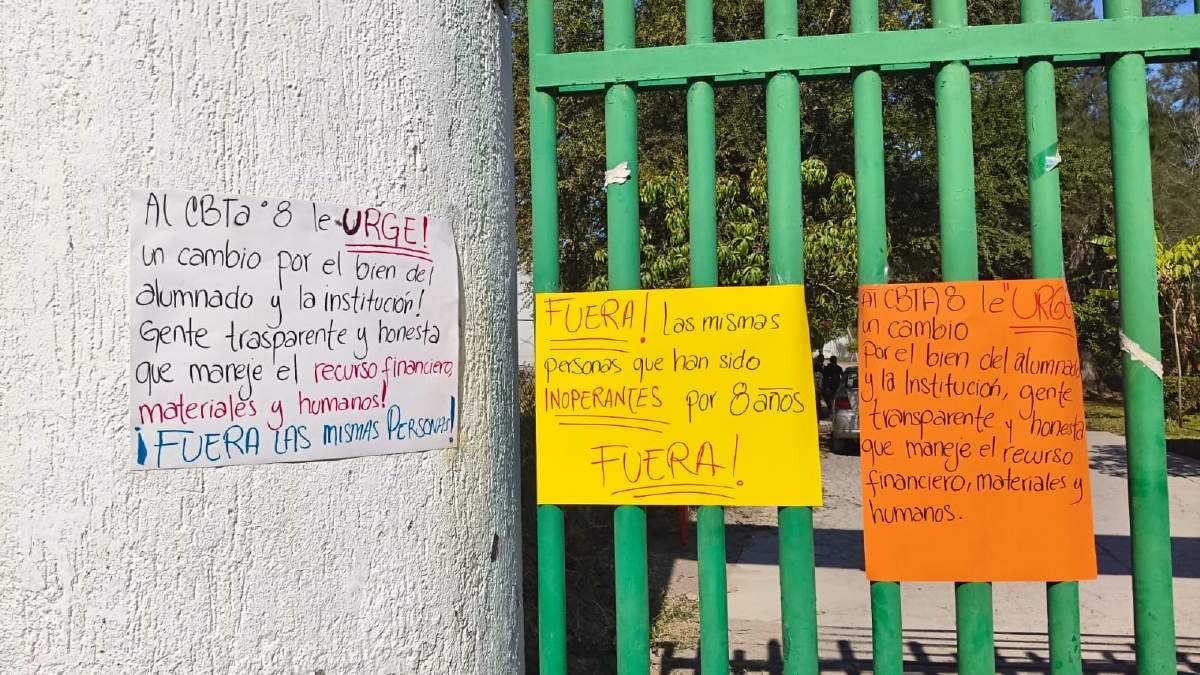 Al CBTa °8 le URGE!
un cambio por el bien del
alumnado y la institución!
Gente trasparente y honesta
que maneje el recurso financiero,
materiales y humanos!
¡FUERA LAS MISMAS PERSONAS!
FUERA! Las mismas
personas que han sido
INOPERANTES por 8 años
FUERA!
Al CBTA 8 le "URGE
un cambio
Por el bien del alumnado
y la Institución, gente
transparente y honesta
que maneje el recurso
financiero, materiales y
humanos.